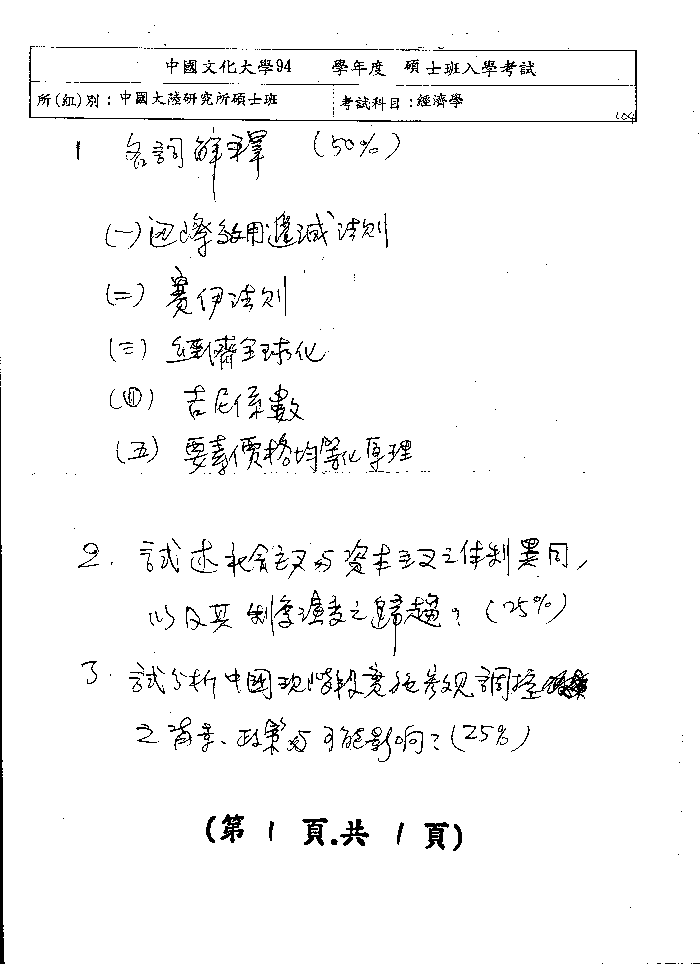 中國文化大學94 學年度 碩士班入學考試
所(組)別:中國大陸研究所碩士班 考試科目:經濟學
1 名詞解釋 (50%)
(一)邊際效用遞減法則
(二) 賽伊法則
(三) 經濟全球化
(四) 吉尼係數
(五) 要素價格均等化原理
2. 試述社會主义与資本主义之体制異同,
以及其制度演變之歸趨?(25%)
3. 試分析中國現階段實施宏观調控
之背景、政策与可能影响?(25%)
(第 1 頁.共 1 頁)